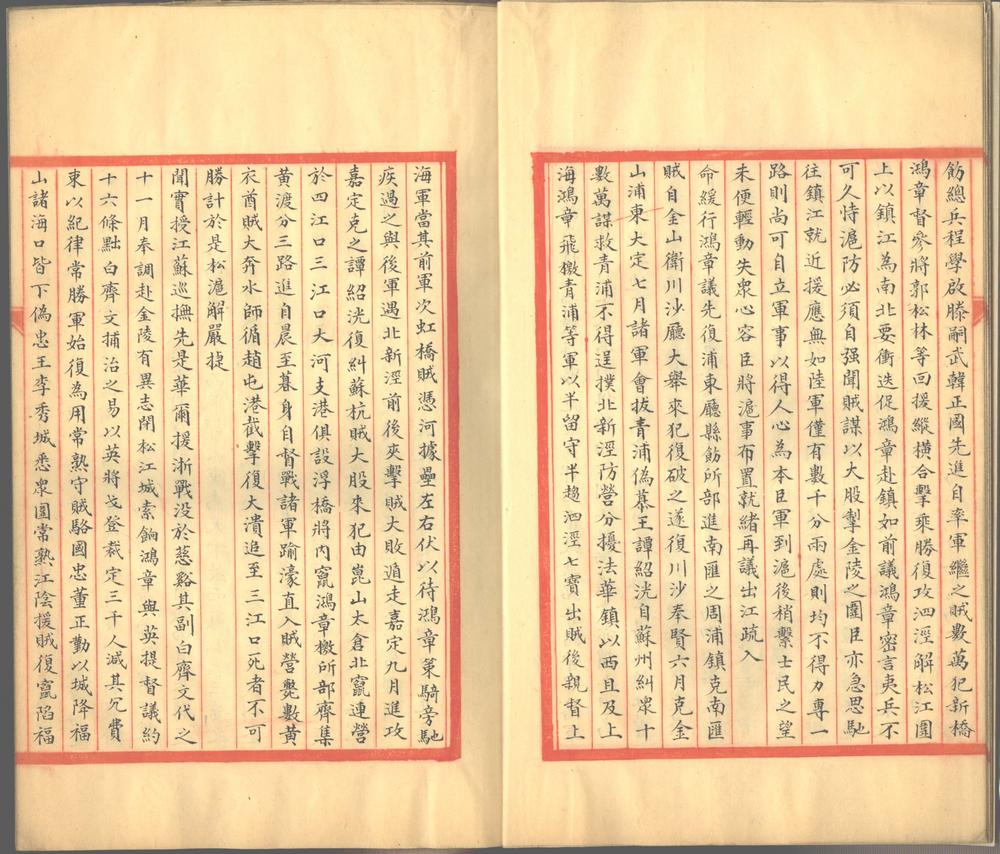 飭總兵程學啟滕嗣武韓正國先進自率軍繼之賊數萬犯新橋
鴻章督參將郭松林等回援縱橫合擊乘勝復攻泗涇解松江圍
上以鎮江為南北要衝迭促鴻章赴鎮如前議鴻章密言夷兵不
可久恃滬防必須自强聞賊謀以大股掣金陵之圍臣亦急思馳
往鎮江就近援應無如陸軍僅有數千分兩處則均不得力專一
路則尚可自立軍事以得人心為本臣軍到滬後稍繫士民之望
未便輕動失眾心容臣將滬事布置就緒再議出江疏入
命緩行鴻章議先復浦東廳縣飭所部進南匯之周浦鎮克南匯
賊自金山衛川沙廳大舉來犯復破之遂復川沙奉賢六月克金
山浦東大定七月諸軍會拔青浦偽慕王譚紹洸自蘇州糾眾十
數萬謀救青浦不得逞撲北新涇防營分擾法華鎮以西且及上
海鴻章飛檄青浦等軍以半留守半趨泗涇七寶出賊後親督上
海軍當其前軍次虹橋賊憑河據壘左右伏以待鴻章策騎旁馳
疾過之與後軍遇北新涇前後夾擊賊大敗遁走嘉定九月進攻
嘉定克之譚紹洸復糾蘇杭賊大股來犯由崑山太倉北竄連營
於四江口三江口大河支港俱設浮橋將內竄鴻章檄所部齊集
黃渡分三路進自晨至暮身自督戰諸軍踰濠直入賊營斃數黃
衣酋賊大奔水師循趙屯港截擊復大潰追至三江口死者不可
勝計於是松滬解嚴捷
聞實授江蘇巡撫先是華爾援浙戰没於慈谿其副白齊文代之
十一月奉調赴金陵有異志閉松江城索餉鴻章與英提督議約
十六條黜白齊文捕治之易以英將戈登裁定三千人減其冗費
束以紀律常勝軍始復為用常熟守賊駱國忠董正勤以城降福
山諸海口皆下偽忠王李秀城悉眾圍常熟江陰援賊復竄陷福